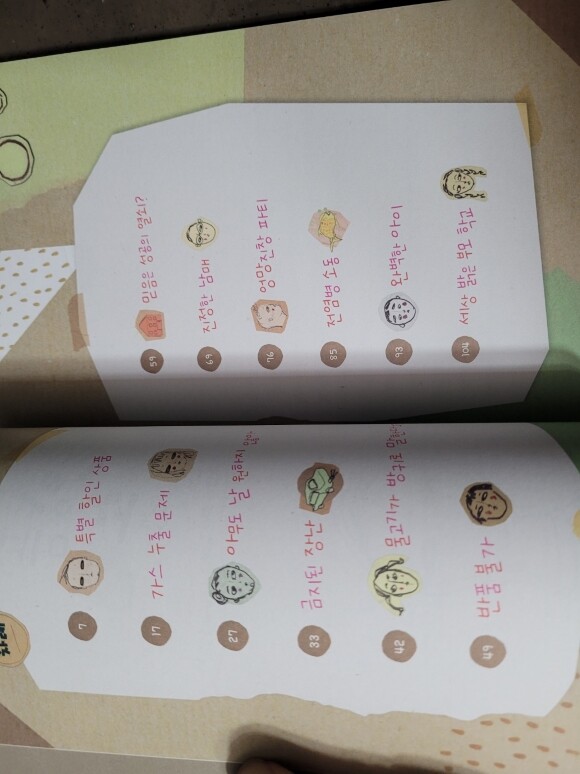 차례
7 특별 할인 상품
17 가스 누출 문제
27 아무도 날 원하지
33 금지된 장난
42 물고기가 방귀로
49 반품 불가
59 믿음은 성공의 열쇠?
69 진정한 남매
76 엉망진창 파티
85 전염병 소동
93 완벽한 아이
104 세상 밝은 부모 학교